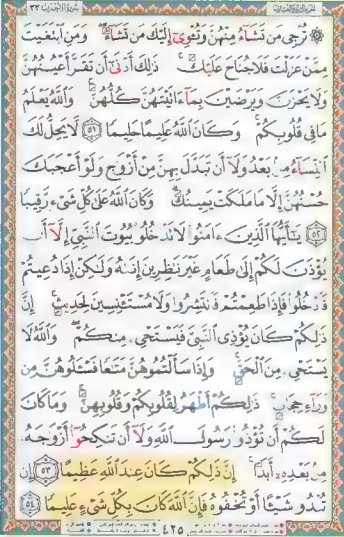 سورة الأحزاب ٣٣
۞ تُرْجِى مَن تَشَآءُ مِنْهُنَّ وَتُـْٔوِىٓ إِلَيْكَ مَن تَشَآءُ ۖ وَمَنِ ٱبْتَغَيْتَ
مِمَّنْ عَزَلْتَ فَلَا جُنَاحَ عَلَيْكَ ۚ ذَٰلِكَ أَدْنَىٰٓ أَن تَقَرَّ أَعْيُنُهُنَّ
وَلَا يَحْزَنَّ وَيَرْضَيْنَ بِمَآ ءَاتَيْتَهُنَّ كُلُّهُنَّ ۚ وَٱللَّهُ يَعْلَمُ
مَا فِى قُلُوبِكُمْ ۚ وَكَانَ ٱللَّهُ عَلِيمًا حَلِيمًا ٥١ لَّا يَحِلُّ لَكَ
ٱلنِّسَآءُ مِنۢ بَعْدُ وَلَآ أَن تَبَدَّلَ بِهِنَّ مِنْ أَزْوَٰجٍ وَلَوْ أَعْجَبَكَ
حُسْنُهُنَّ إِلَّا مَا مَلَكَتْ يَمِينُكَ ۗ وَكَانَ ٱللَّهُ عَلَىٰ كُلِّ شَىْءٍ رَّقِيبًا
٥٢ يَـٰٓأَيُّهَا ٱلَّذِينَ ءَامَنُوا۟ لَا تَدْخُلُوا۟ بُيُوتَ ٱلنَّبِىِّ إِلَّآ أَن
يُؤْذَنَ لَكُمْ إِلَىٰ طَعَامٍ غَيْرَ نَـٰظِرِينَ إِنَىٰهُ وَلَـٰكِنْ إِذَا دُعِيتُمْ
فَٱدْخُلُوا۟ فَإِذَا طَعِمْتُمْ فَٱنتَشِرُوا۟ وَلَا مُسْتَـْٔنِسِينَ لِحَدِيثٍ ۚ إِنَّ
ذَٰلِكُمْ كَانَ يُؤْذِى ٱلنَّبِىَّ فَيَسْتَحْىِۦ مِنكُمْ ۖ وَٱللَّهُ لَا
يَسْتَحْىِۦ مِنَ ٱلْحَقِّ ۚ وَإِذَا سَأَلْتُمُوهُنَّ مَتَـٰعًا فَسْـَٔلُوهُنَّ مِن
وَرَآءِ حِجَابٍ ۚ ذَٰلِكُمْ أَطْهَرُ لِقُلُوبِكُمْ وَقُلُوبِهِنَّ ۚ وَمَا كَانَ
لَكُمْ أَن تُؤْذُوا۟ رَسُولَ ٱللَّهِ وَلَآ أَن تَنكِحُوٓا۟ أَزْوَٰجَهُۥ
مِنۢ بَعْدِهِۦٓ أَبَدًا ۚ إِنَّ ذَٰلِكُمْ كَانَ عِندَ ٱللَّهِ عَظِيمًا ٥٣ إِن
تُبْدُوا۟ شَيْـًٔا أَوْ تُخْفُوهُ فَإِنَّ ٱللَّهَ كَانَ بِكُلِّ شَىْءٍ عَلِيمًا ٥٤
٤٢٥